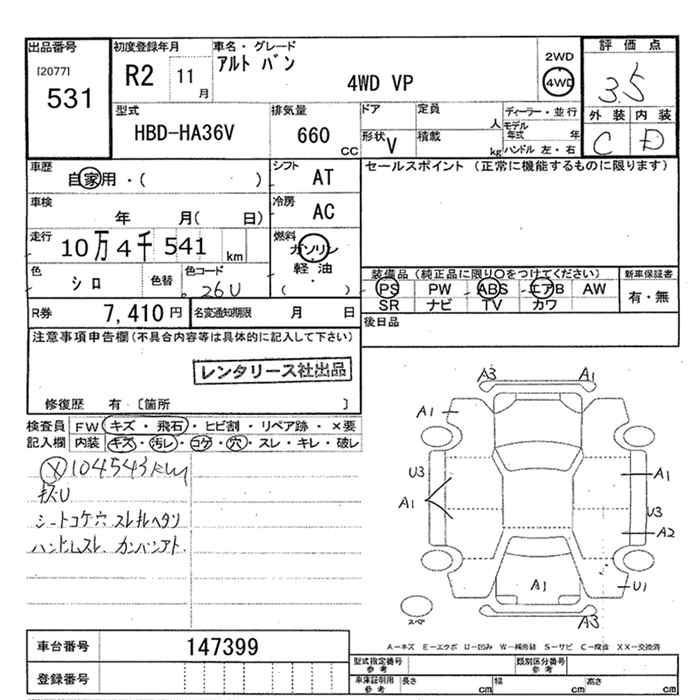 出品番号
[2077]
531
初度登録年月
R2
11
月
車名・グレード
アルト バン
4WD VP
2WD
4WD
評価点
3.5
外装
内装
C
D
型式
HBD-HA36V
排気量
660
CC
ドア
定員
人
形状
V
積載
kg
ディーラー・並行
モデル年式
年
ハンドル 左・右
車歴
自家用・( )
シフト
AT
車検
年 月( 日)
冷房
AC
走行
10万 4千 541 km
燃料
ガソリン
軽油
( )
色
シロ
色替
色コード
26U
R券
7,410 円
名変通知期限
月 日
セールスポイント (正常に機能するものに限ります)
装備品 (純正品に限り○をつけてください)
PS PW ABS エアB AW
SR ナビ TV カワ
新車保証書
有・無
後日品
注意事項申告欄(不具合内容等は具体的に記入して下さい)
レンタリース社出品
修復歴 有 [箇所 ]
検査員記入欄
FW キズ・飛石・ヒビ割・リペア跡・×要
内装 キズ・汚レ・コゲ・穴・スレ・キレ・破レ
104543km
シートコゲ穴
A3
A1
A1
U3
A1
A1
U3
A2
A1
U1
A3
スペア
A-キズ E-エクボ U-凹み W-補修跡 S-サビ C-腐食 XX-交換済
車台番号
147399
登録番号
型式指定番号
参考
類別区分番号
参考
車庫証明用
参考
長さ cm
幅 cm
高さ cm